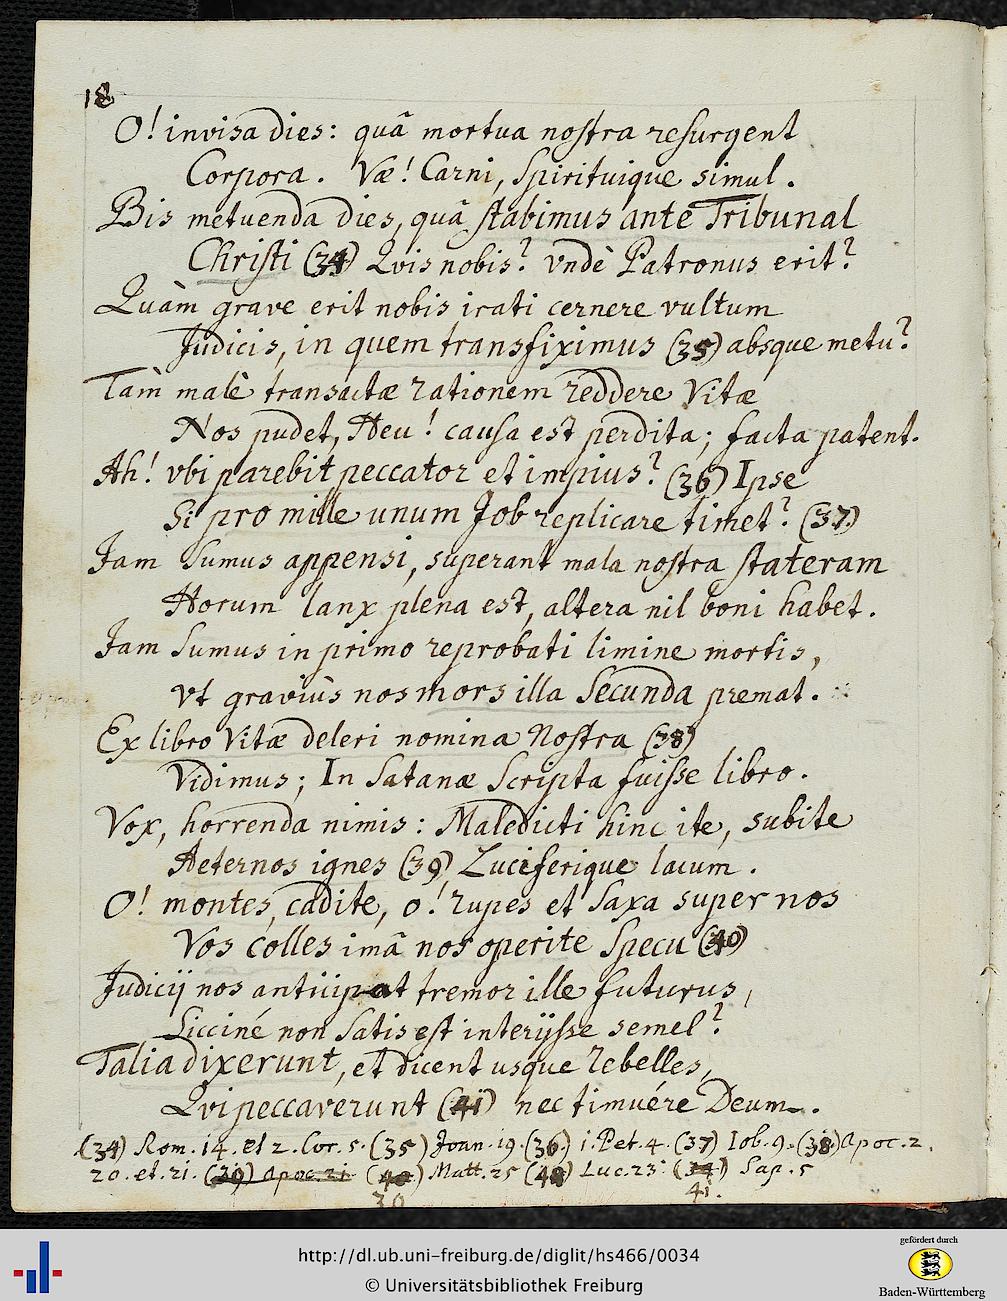 18
O! invisa dies: quâ mortua nostra resurgent
Corpora. Væ! Carni, Spirituique simul.
Bis metuenda dies, quâ stabimus ante Tribunal
Christi (34) Qvis nobis? vndè Patronus erit?
Quàm grave erit nobis irati cernere vultum
Judicis, in quem transfiximus (35) absque metu?
Tam malè transactæ rationem reddere Vitæ
Nos pudet, Heu! causa est perdita; facta patent.
Ah! vbi parebit peccator et impius? (36) Ipse
Si pro mille unum Job replicare timet? (37)
Jam Sumus appensi, superant mala nostra stateram
Horum lanx plena est, altera nil boni habet.
Jam Sumus in primo reprobati limine mortis,
Vt graviùs nos mors illa Secunda premat.
Ex libro Vitæ deleri nomina Nostra (38)
Vidimus; In Satanæ Scripta fuisse libro.
Vox, horrenda nimis: Maledicti hinc ite, subite
Aeternos ignes (39) Luciferique lacum.
O! montes, cadite, o! rupes et Saxa super nos
Vos colles imâ nos operite Specu (40)
Judicij nos anticipat tremor ille futurus,
Sicciné non Satis est interijsse semel?
Talia dixerunt, et dicent usque Rebelles,
Qvi peccaverunt (41) nec timuére Deum.
(34) Rom. 14. et 2. Cor. 5. (35) Joan. 19. (36) 1. Pet. 4. (37) Iob. 9. (38) Apoc. 2.
20. et. 21. (39) Apoc. 21 (40) Matt. 25 (40) Luc. 23. (34) Sap. 5
39 41.
http://dl.ub.uni-freiburg.de/diglit/hs466/0034
© Universitätsbibliothek Freiburg
gefördert durch
Baden-Württemberg